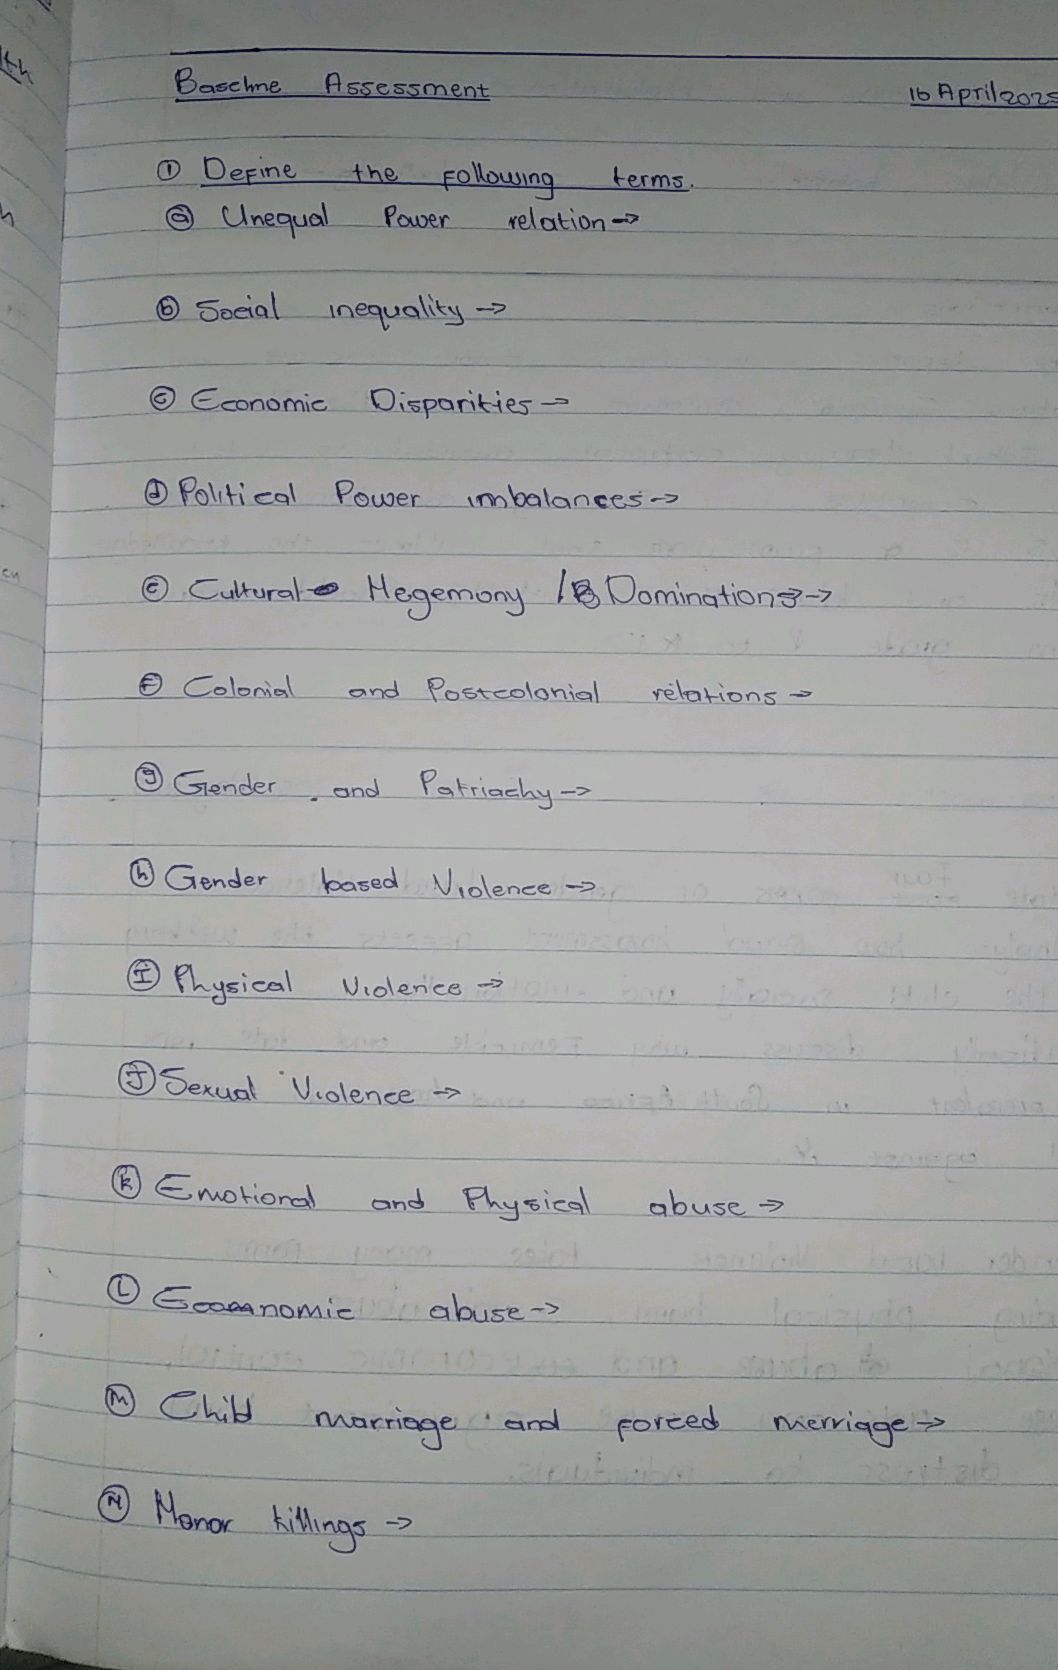 Baseline Assessment 16 April 2025
① Define the following terms.
ⓐ Unequal Power relation →
ⓑ Social inequality →
ⓒ Economic Disparities →
ⓓ Political Power imbalances →
ⓔ Cultural Hegemony / Domination →
ⓕ Colonial and Postcolonial relations →
ⓖ Gender and Patriachy →
ⓗ Gender based Violence →
Ⓘ Physical Violence →
Ⓙ Sexual Violence →
Ⓚ Emotional and Physical abuse →
Ⓛ Economic abuse →
Ⓜ Child marriage and forced merriage →
Ⓝ Honor killings →